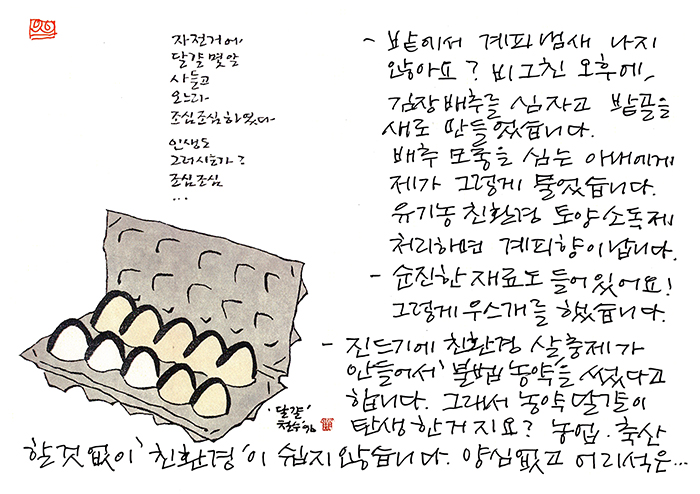 자전거에,
달걀 몇 알
사 들고
오느라
조심조심하였다
인생도
그러시는가?
조심조심
...
- 밭에서 계피냄새 나지
않아요? 비 그친 오후에,
김장배추를 심자고 밭골을
새로 만들었습니다.
배추 모종을 심는 아내에게
제가 그렇게 물었습니다.
유기농 친환경 토양소독제
처리하면 계피향이 납니다.
- 순진한 재료도 들어있어요!
그렇게 우스개를 했습니다.
- 진드기에 친환경 살충제가
안들어서 '불법 농약'을 썼다고
합니다. 그래서 농약달걀이
탄생한거지요? 농업·축산
할것 없이 '친환경'이 쉽지 않습니다. 양심없고 어리석은...
'달걀'
철수